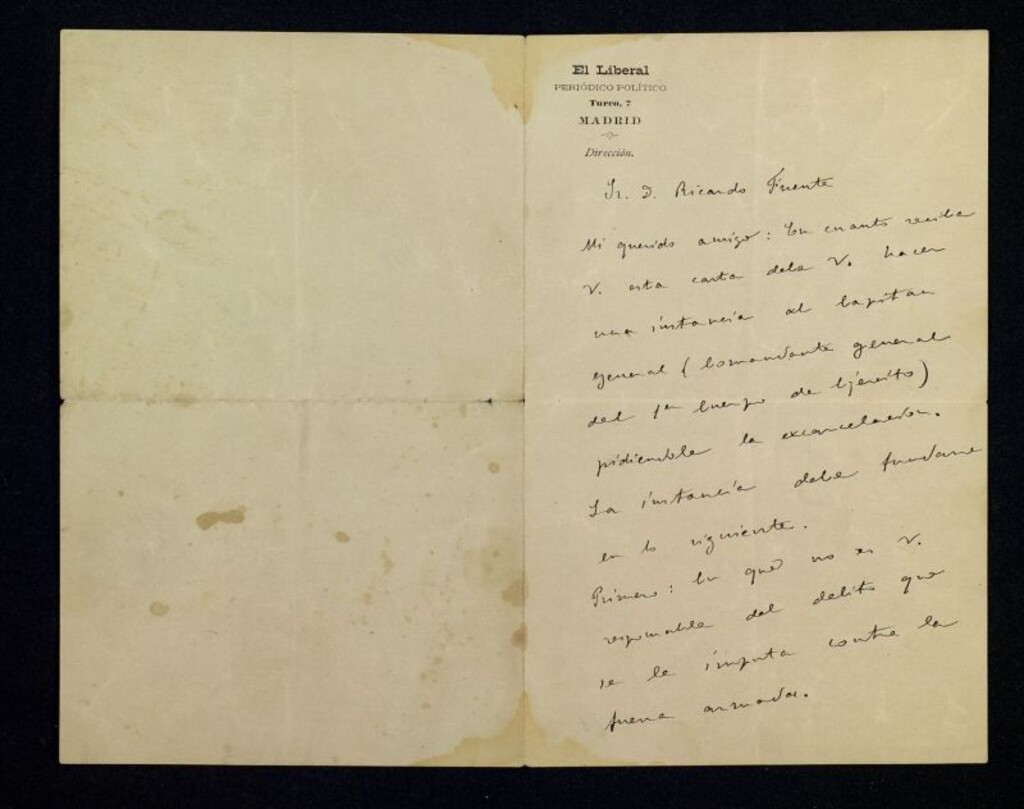 El Liberal
PERIÓDICO POLÍTICO
Turco, 7
MADRID
Dirección.
Sr. D. Ricardo Fuente
Mi querido amigo: En cuanto reciba
V. esta carta debe V. hacer
una instancia al Capitan
general (Comandante general
del 1er Cuerpo de Ejército)
pidiendole la excarcelación.
La instancia debe fundarse
en lo siguiente.
Primero: En que no es V.
responsable del delito que
se le imputa contra la
fuerza armada.